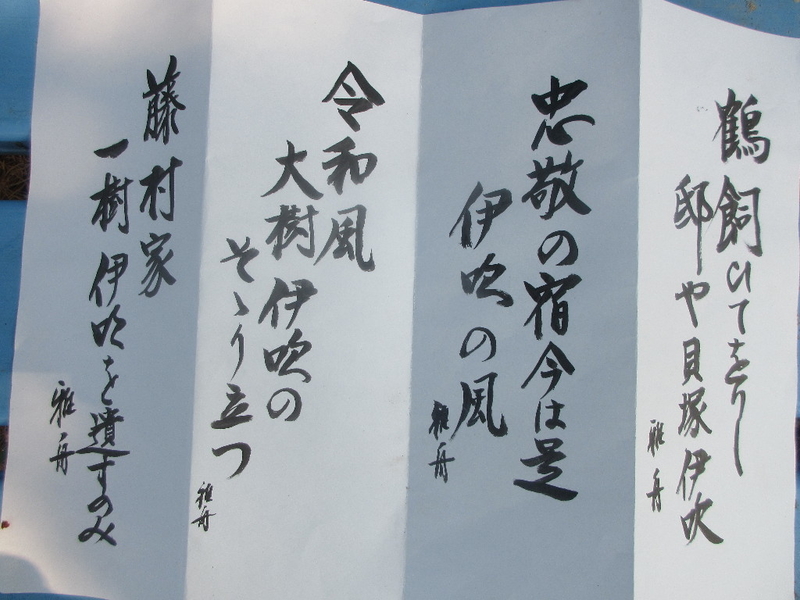 鶴飼ひてをりし
邸や貝塚伊吹
雅舟
忠敬の宿今は是
伊吹の風
雅舟
令和風
大樹伊吹の
そゝり立つ
雅舟
藤村家
一樹伊吹を遺すのみ
雅舟